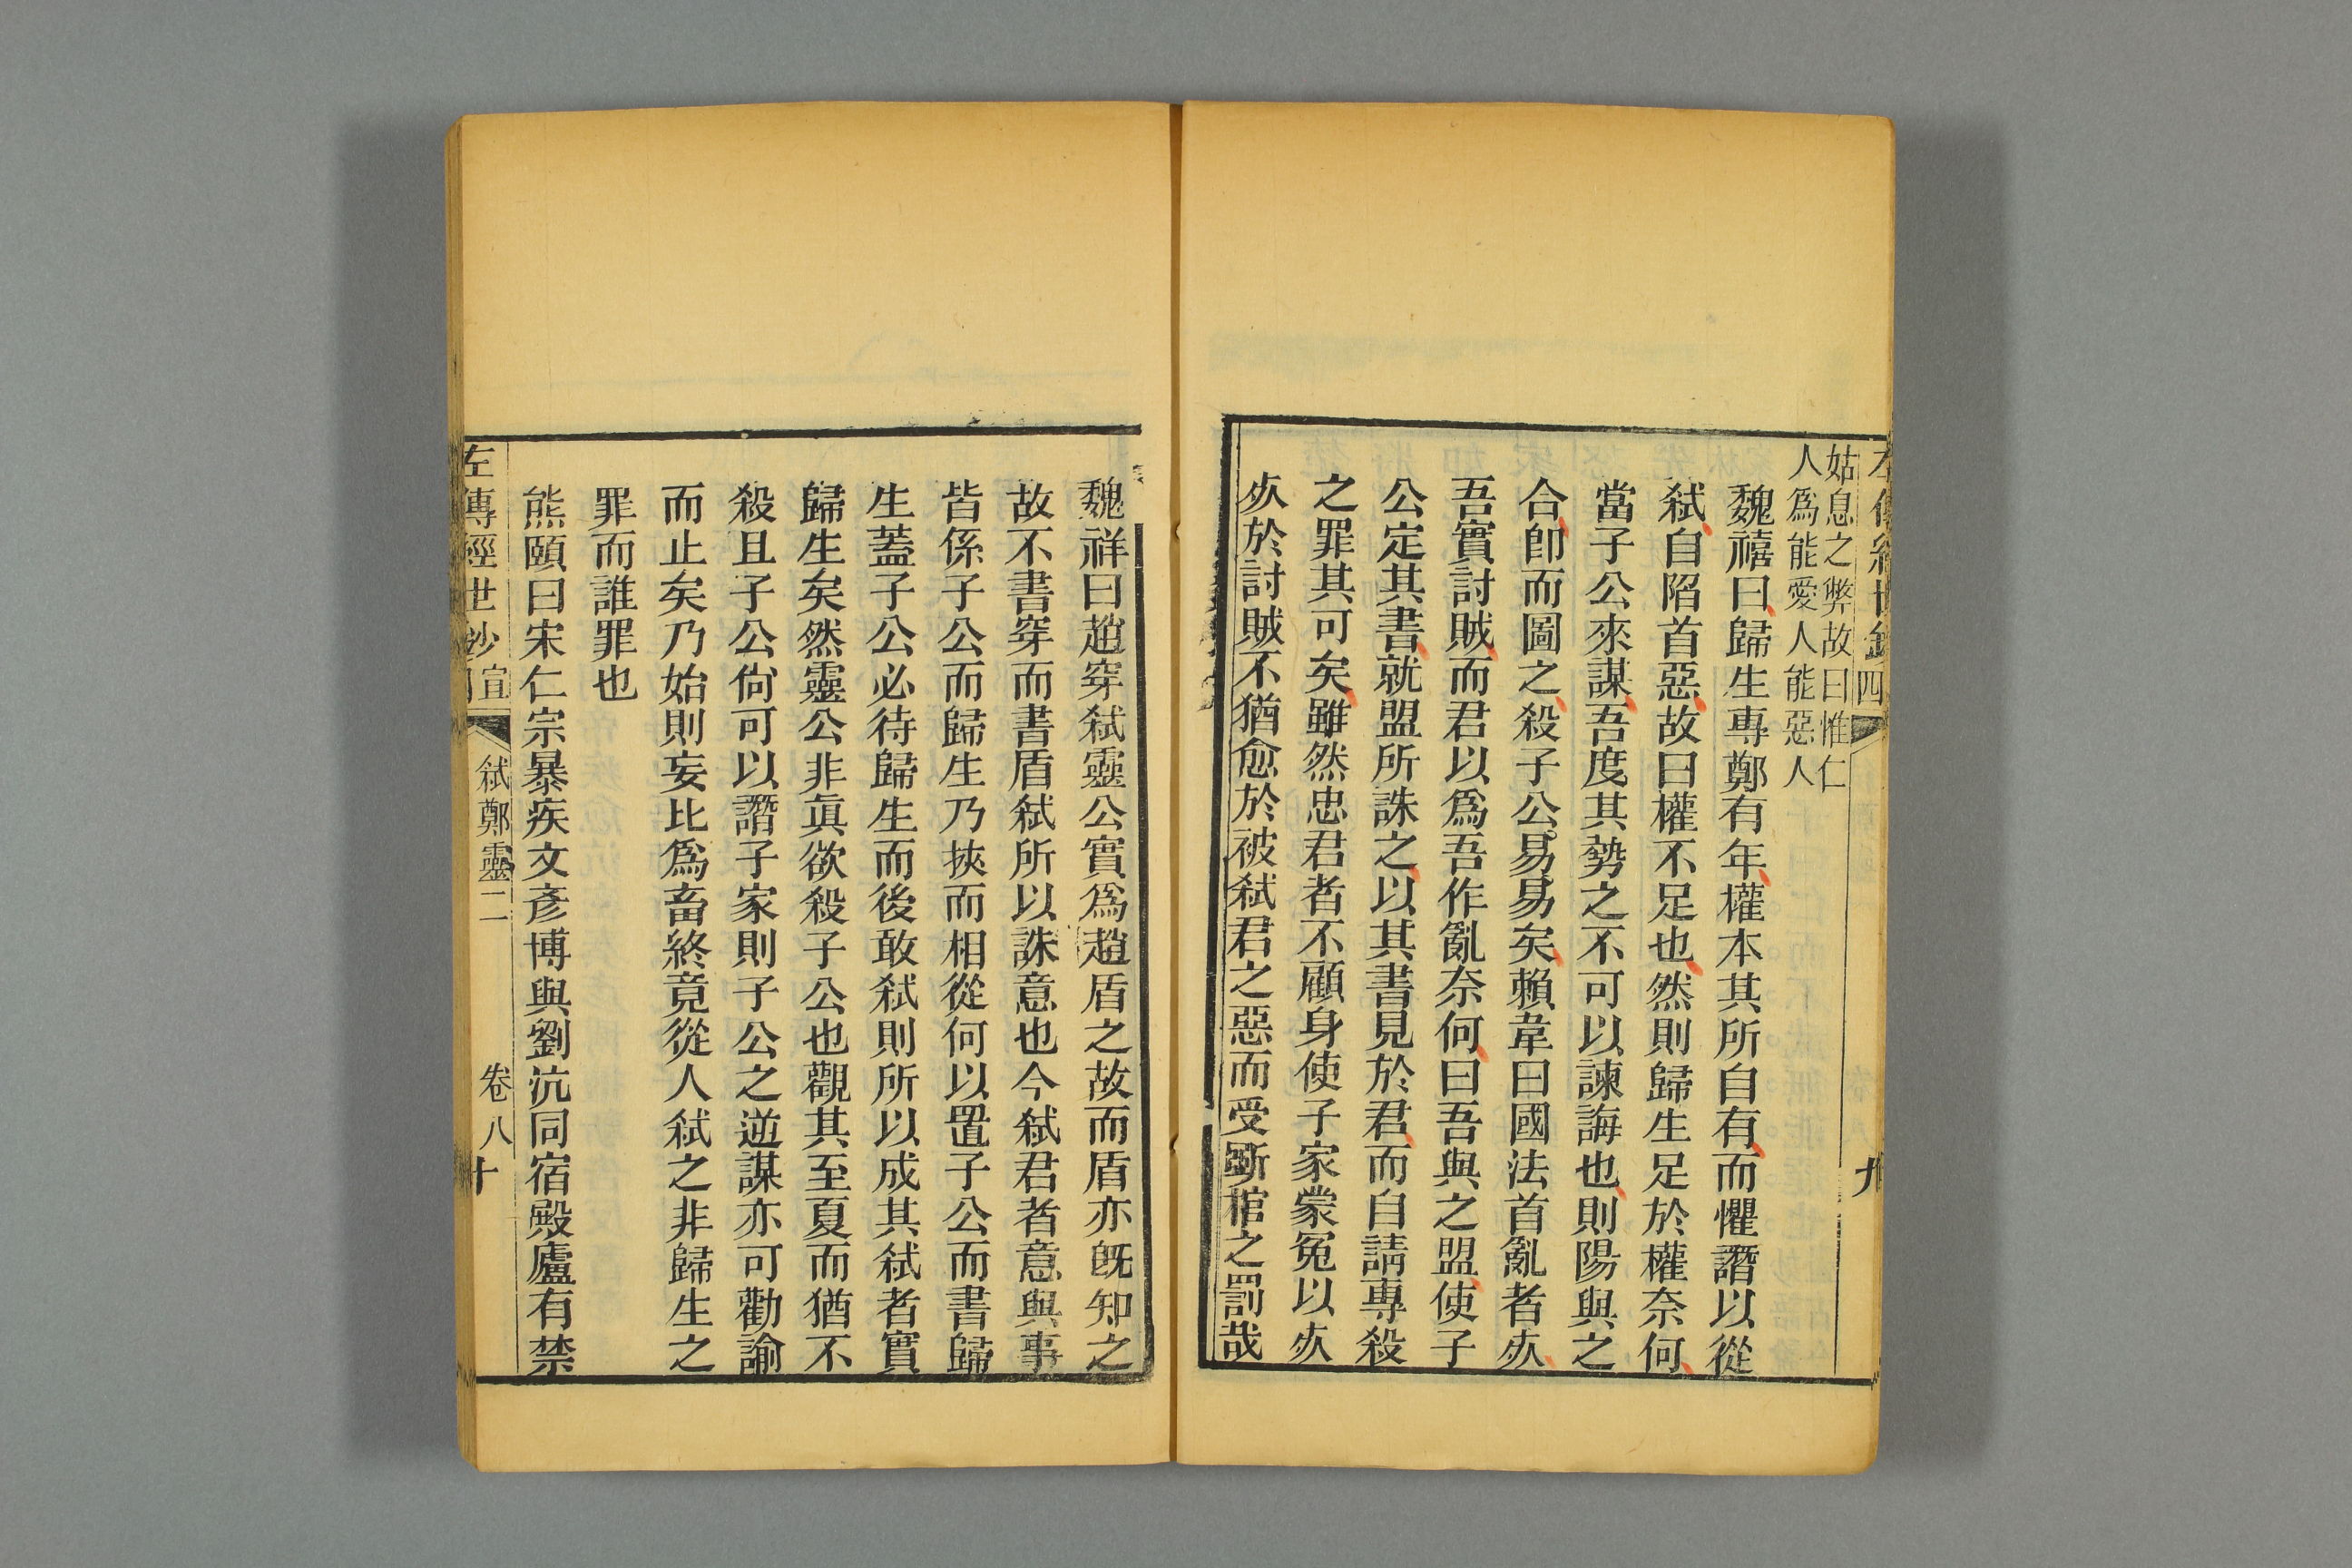 左傳經世鈔
四
九
姑息之弊故曰惟仁
人爲能愛人能惡人
魏禧曰歸生專鄭有年權本其所自有而懼譖以從
弑自陷首惡故曰權不足也然則歸生足於權奈何
當子公來謀吾度其勢之不可以諫誨也則陽與之
合卽而圖之殺子公易易矣賴韋曰國法首亂者夾
吾實討賊而君以爲吾作亂奈何曰吾與之盟使子
公定其書就盟所誅之以其書見於君而自請專殺
之罪其可矣雖然忠君者不顧身使子家蒙冤以夾
夾於討賊不猶愈於被弑君之惡而受斲棺之罰哉
魏祥曰趙穿弑靈公實爲趙盾之故而盾亦旣知之
故不書穿而書盾弑所以誅意也今弑君者意與事
皆係子公而歸生乃挾而相從何以置子公而書歸
生蓋子公必待歸生而後敢弑則所以成其弑者實
歸生矣然靈公非眞欲殺子公也觀其至夏而猶不
殺且子公尙可以譖子家則子公之逆謀亦可勸諭
而止矣乃始則妄比爲畜終竟從人弑之非歸生之
罪而誰罪也
熊頤曰宋仁宗暴疾文彥博與劉沆同宿殿廬有禁
左傳經世鈔
宣
弑鄭靈二
卷八
十